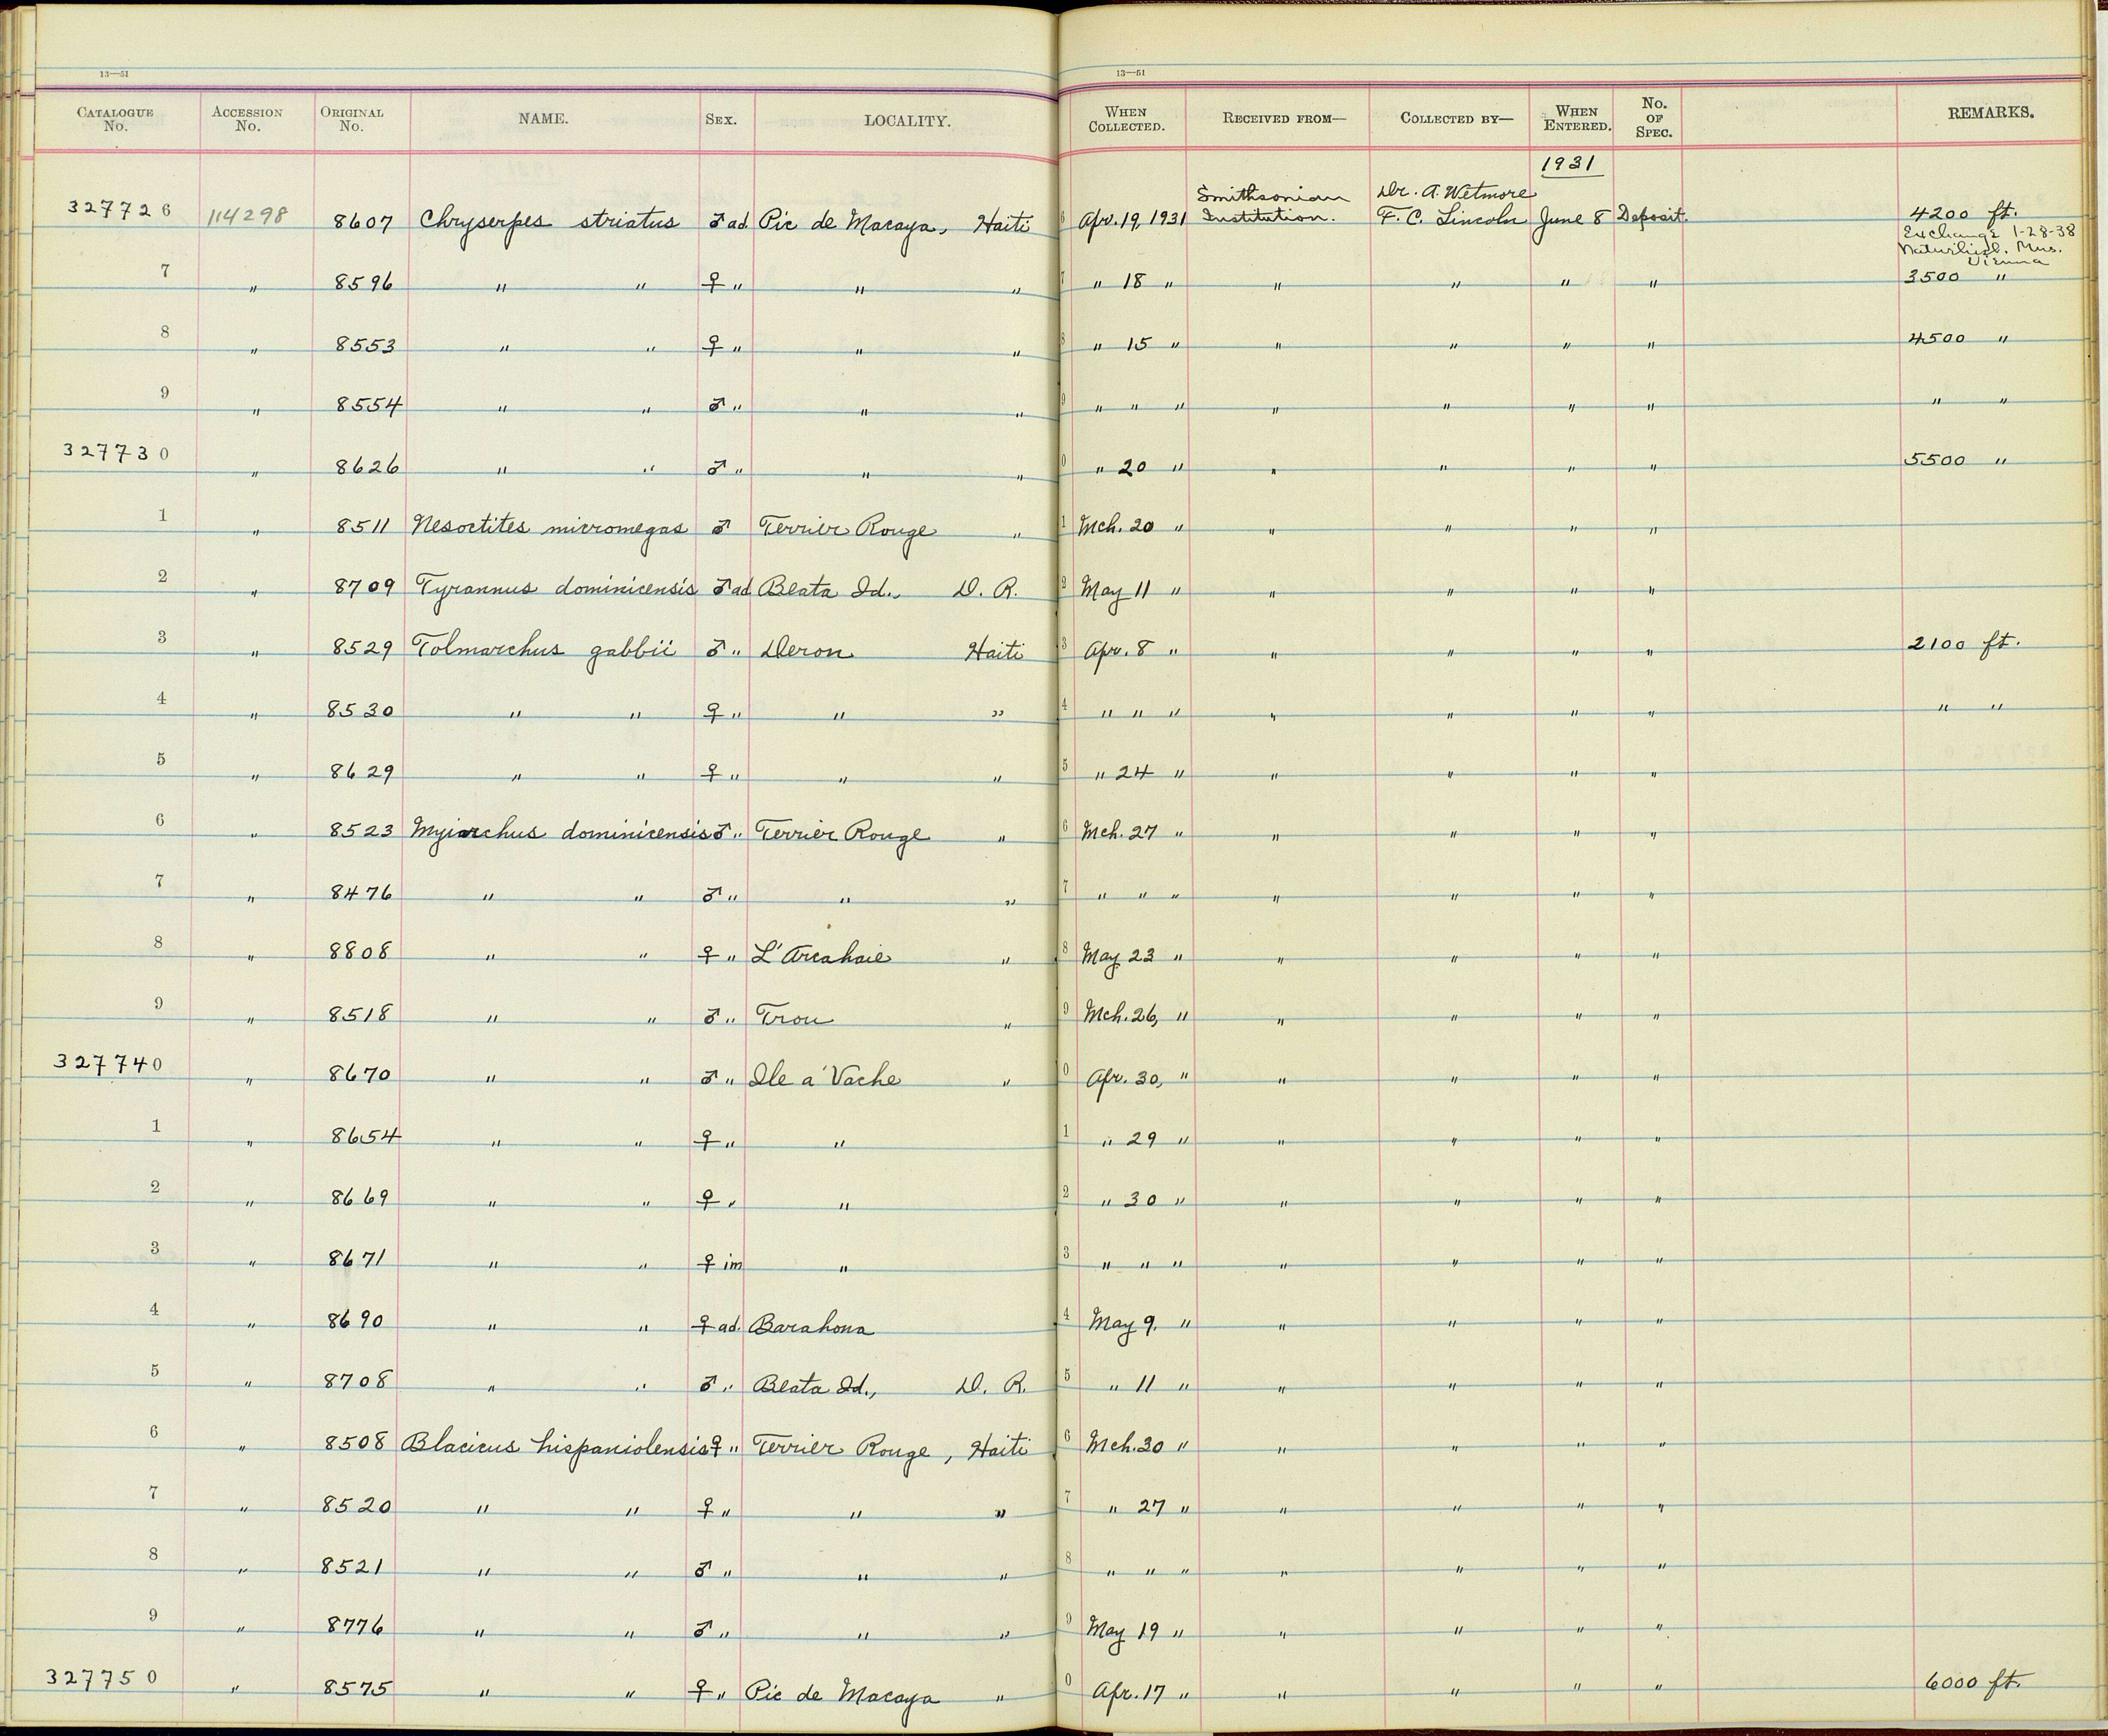 13—51 13—51
CATALOGUE No. ACCESSION No. ORIGINAL No. NAME. SEX. LOCALITY. WHEN COLLECTED. RECEIVED FROM— COLLECTED BY— WHEN ENTERED. No. OF SPEC. REMARKS.
1931
327726 114298 8607 Chryserpes striatus ♂ ad. Pic de Macaya, Haiti 6 Apr. 19, 1931 Smithsonian Institution. Dr. A. Wetmore F. C. Lincoln June 8 Deposit. 4200 ft.
Exchange 1-28-38
Naturhist. Mus.
Vienna
7 " 8596 " " ♀ " " " 7 " 18 " " " " " 3500 "
8 " 8553 " " ♀ " " " 8 " 15 " " " " " 4500 "
9 " 8554 " " ♂ " " " 9 " " " " " " " " "
327730 " 8626 " " ♂ " " " 0 " 20 " " " " " 5500 "
1 " 8511 Nesoctites micromegas ♂ Terrier Rouge " 1 Mch. 20 " " " " "
2 " 8709 Tyrannus dominicensis ♂ ad Beata Id., D. R. 2 May 11 " " " " "
3 " 8529 Tolmarchus gabbii ♂ " Deron Haiti 3 Apr. 8 " " " " " 2100 ft.
4 " 8530 " " ♀ " " " 4 " " " " " " " " "
5 " 8629 " " ♀ " " " 5 " 24 " " " " "
6 " 8523 Myiarchus dominicensis ♂ " Terrier Rouge " 6 Mch. 27 " " " " "
7 " 8476 " " ♂ " " " 7 " " " " " " "
8 " 8808 " " ♀ " L'Arcahaie " 8 May 23 " " " " "
9 " 8518 " " ♂ " Trou " 9 Mch. 26, " " " " "
327740 " 8670 " " ♂ " Ile a' Vache " 0 Apr. 30, " " " " "
1 " 8654 " " ♀ " " 1 " 29 " " " " "
2 " 8669 " " ♀ " " 2 " 30 " " " " "
3 " 8671 " " ♀ im " 3 " " " " " " "
4 " 8690 " " ♀ ad. Barahona 4 May 9. " " " " "
5 " 8708 " " ♂ " Beata Id., D. R. 5 " 11 " " " " "
6 " 8508 Blacicus hispaniolensis ♀ " Terrier Rouge, Haiti 6 Mch. 30 " " " " "
7 " 8520 " " ♀ " " " 7 " 27 " " " " "
8 " 8521 " " ♂ " " " 8 " " " " " " "
9 " 8776 " " ♂ " " " 9 May 19 " " " " "
327750 " 8575 " " ♀ " Pic de Macaya " 0 Apr. 17 " " " " " 6000 ft.